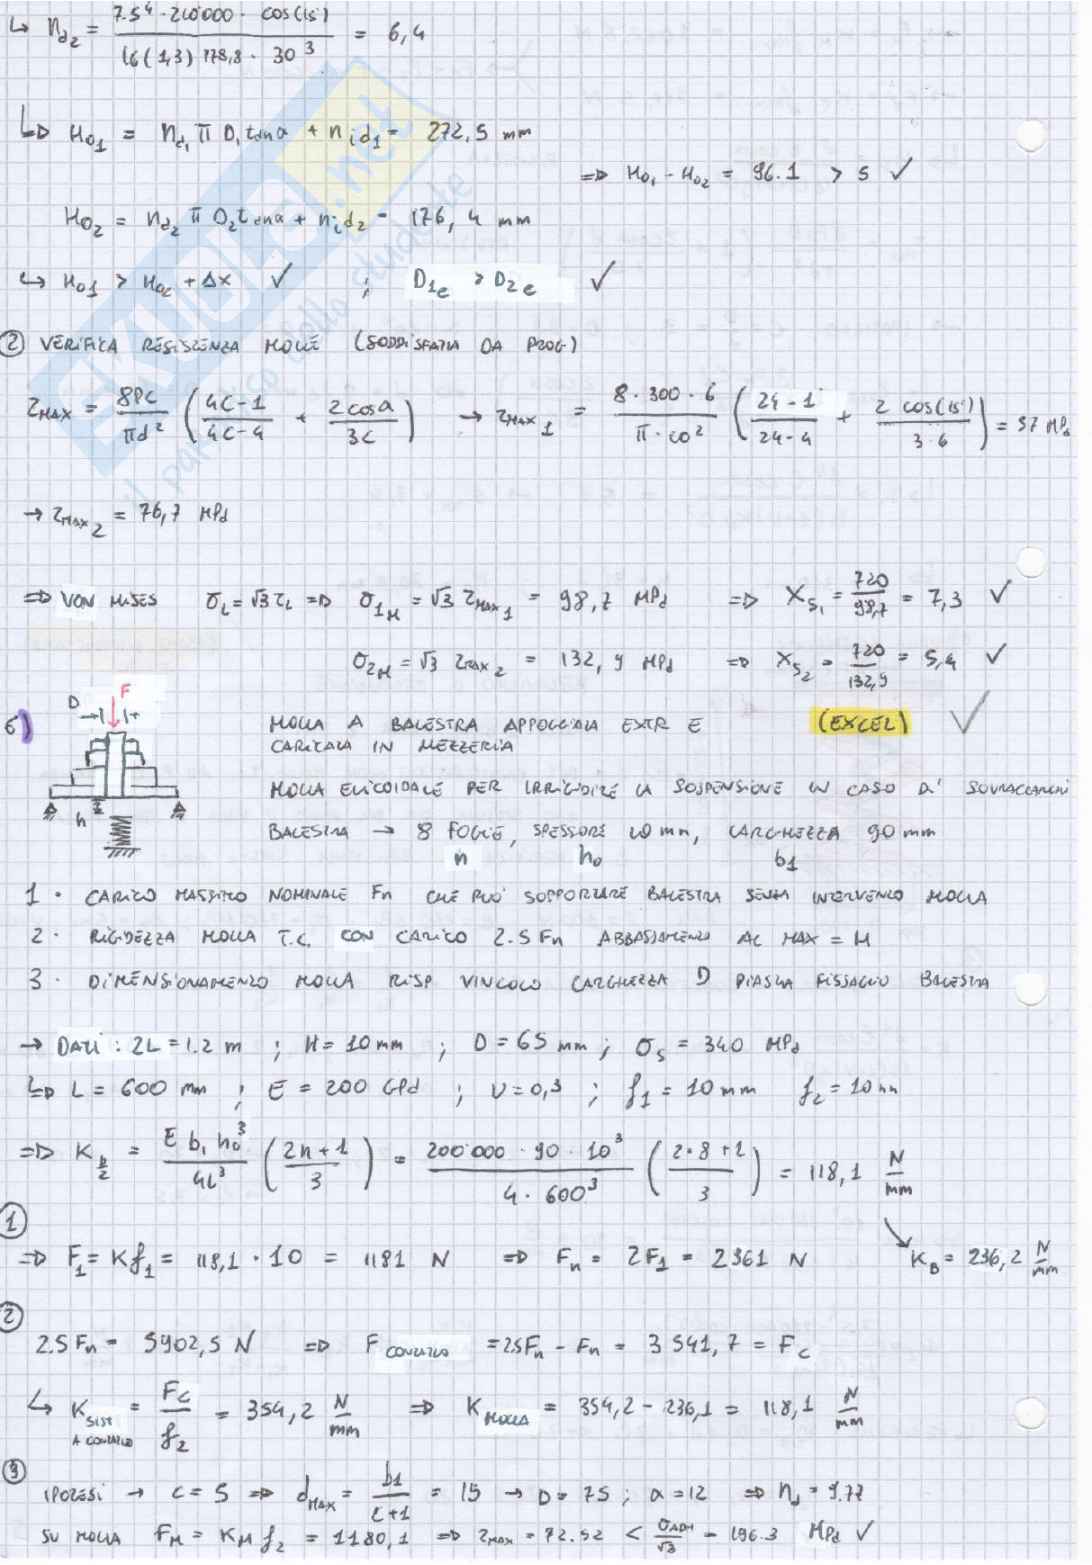 ↳ n_d2 = (7.5⁴ · 210'000 · cos(15)) / (16(1,3) 178,8 · 30³) = 6,4
↳ H01 = nd1 π D1 tanα + ni d1 = 272,5 mm
⇒ H01 - H02 = 96.1 > 5 ✓
H02 = nd2 π D2 tanα + ni d2 = 176,4 mm
↳ H01 > H02 + Δx ✓ ; D1e > D2e ✓
② VERIFICA RESISTENZA MOLLE (SODDISFATTA DA PROG)
τMAX = 8PC/πd² ( (4C-1)/(4C-4) + 2cosα/3C ) → τMAX1 = (8·300·6)/(π·10²) ( (24-1)/(24-4) + 2 cos(15)/(3·6) ) = 57 MPa
→ τMAX2 = 76,7 MPa
⇒ VON MISES σL = √3 τL ⇒ σ1M = √3 τMAX1 = 98,7 MPa ⇒ XS1 = 720/98,7 = 7,3 ✓
σ2M = √3 τMAX2 = 132,9 MPa ⇒ XS2 = 720/132,9 = 5,4 ✓
D F
6) MOLLA A BALESTRA APPOGGIATA EXTR E (EXCEL) ✓
CARICATA IN MEZZERIA
h
MOLLA ELICOIDALE PER IRRIGIDIRE LA SOSPENSIONE IN CASO DI SOVRACCARICHI
BALESTRA → 8 FOGLIE, SPESSORE 10 mm, LARGHEZZA 90 mm
n h0 b1
1 · CARICO MASSIMO NOMINALE Fn CHE PUO' SOPPORTARE BALESTRA SENZA INTERVENTO MOLLA
2 · RIGIDEZZA MOLLA T.C. CON CARICO 2.5 Fn ABBASSAMENTO AL MAX = H
3 · DIMENSIONAMENTO MOLLA RISP VINCOLO LARGHEZZA D PIASTRA FISSAGGIO BALESTRA
→ DATI : 2L = 1.2 m ; H = 10 mm ; D = 65 mm ; σS = 340 MPa
↳ L = 600 mm ; E = 200 GPa ; ν = 0,3 ; f1 = 10 mm f2 = 10 mm
⇒ K b/2 = E b1 h0³/4L³ ( (2n+1)/3 ) = (200'000 · 90 · 10³)/(4 · 600³) ( (2·8+1)/3 ) = 118,1 N/mm
①
⇒ F1 = Kf1 = 118,1 · 10 = 1181 N ⇒ Fn = 2F1 = 2361 N KB = 236,2 N/mm
②
2.5 Fn = 5902,5 N ⇒ F CONTATTO = 2.5Fn - Fn = 3541,7 = FC
↳ K SIST A CONTATTO = FC/f2 = 354,2 N/mm ⇒ K MOLLA = 354,2 - 236,1 = 118,1 N/mm
③
IPOTESI → C = 5 ⇒ dMAX = b1/(C+1) = 15 → D = 75 ; α = 12 ⇒ nd = 9.77
SU MOLLA FM = KM f2 = 1180,1 ⇒ τMAX = 72.52 < σADM/√3 = 196.3 MPa ✓
SKUOLA.net
il paradiso dello studente